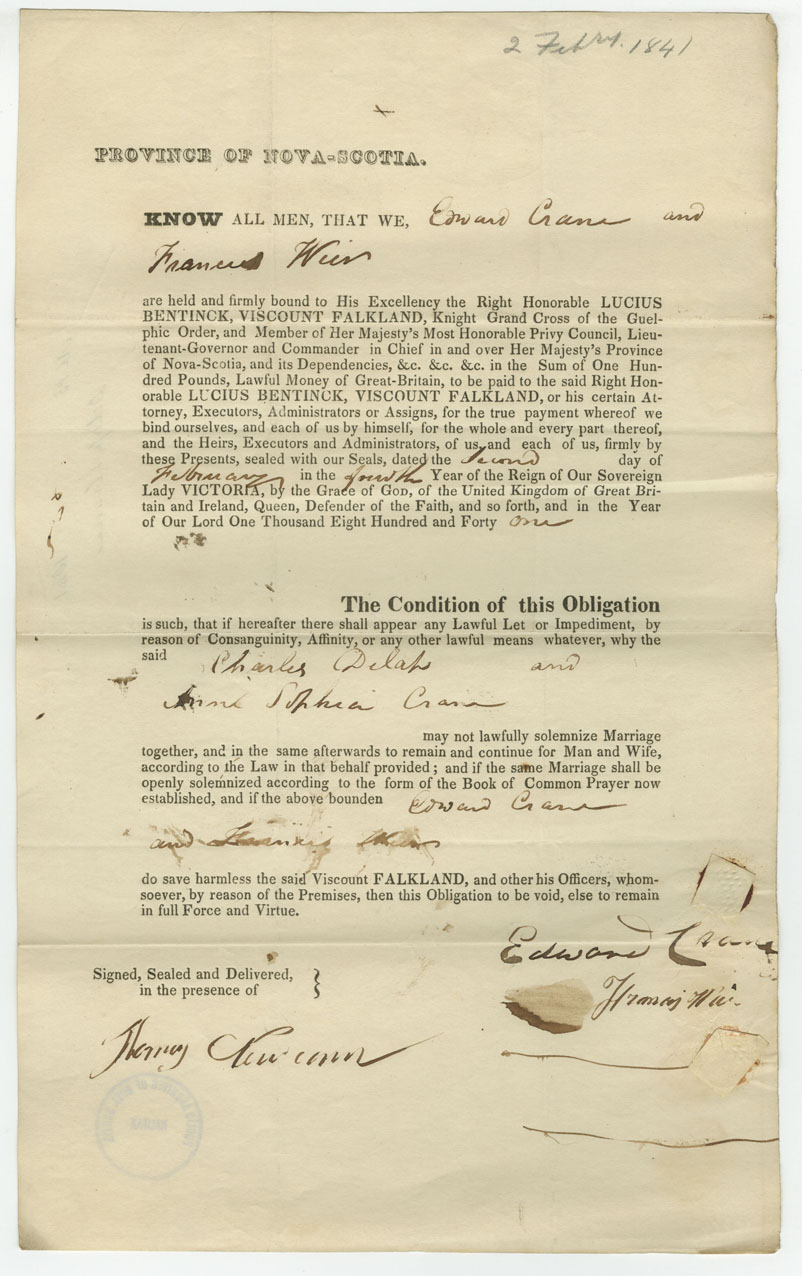 2 Febry. 1841
PROVINCE OF NOVA-SCOTIA.
KNOW ALL MEN, THAT WE, Edward Crane and
Francis Weir
are held and firmly bound to His Excellency the Right Honorable LUCIUS
BENTINCK, VISCOUNT FALKLAND, Knight Grand Cross of the Guel-
phic Order, and Member of Her Majesty's Most Honorable Privy Council, Lieu-
tenant-Governor and Commander in Chief in and over Her Majesty's Province
of Nova-Scotia, and its Dependencies, &c. &c. &c. in the Sum of One Hun-
dred Pounds, Lawful Money of Great-Britain, to be paid to the said Right Hon-
orable LUCIUS BENTINCK, VISCOUNT FALKLAND, or his certain At-
torney, Executors, Administrators or Assigns, for the true payment whereof we
bind ourselves, and each of us by himself, for the whole and every part thereof,
and the Heirs, Executors and Administrators, of us and each of us, firmly by
these Presents, sealed with our Seals, dated the Second day of
February in the fourth Year of the Reign of Our Sovereign
Lady VICTORIA, by the Grace of GOD, of the United Kingdom of Great Bri-
tain and Ireland, Queen, Defender of the Faith, and so forth, and in the Year
of Our Lord One Thousand Eight Hundred and Forty one
The Condition of this Obligation
is such, that if hereafter there shall appear any Lawful Let or Impediment, by
reason of Consanguinity, Affinity, or any other lawful means whatever, why the
said Charles Delap and
Anne Sophia Crane
may not lawfully solemnize Marriage
together, and in the same afterwards to remain and continue for Man and Wife,
according to the Law in that behalf provided; and if the same Marriage shall be
openly solemnized according to the form of the Book of Common Prayer now
established, and if the above bounden Edward Crane
and Francis Weir
do save harmless the said Viscount FALKLAND, and other his Officers, whom-
soever, by reason of the Premises, then this Obligation to be void, else to remain
in full Force and Virtue.
Edward Crane
Signed, Sealed and Delivered,
in the presence of
Francis Weir
Newcomb